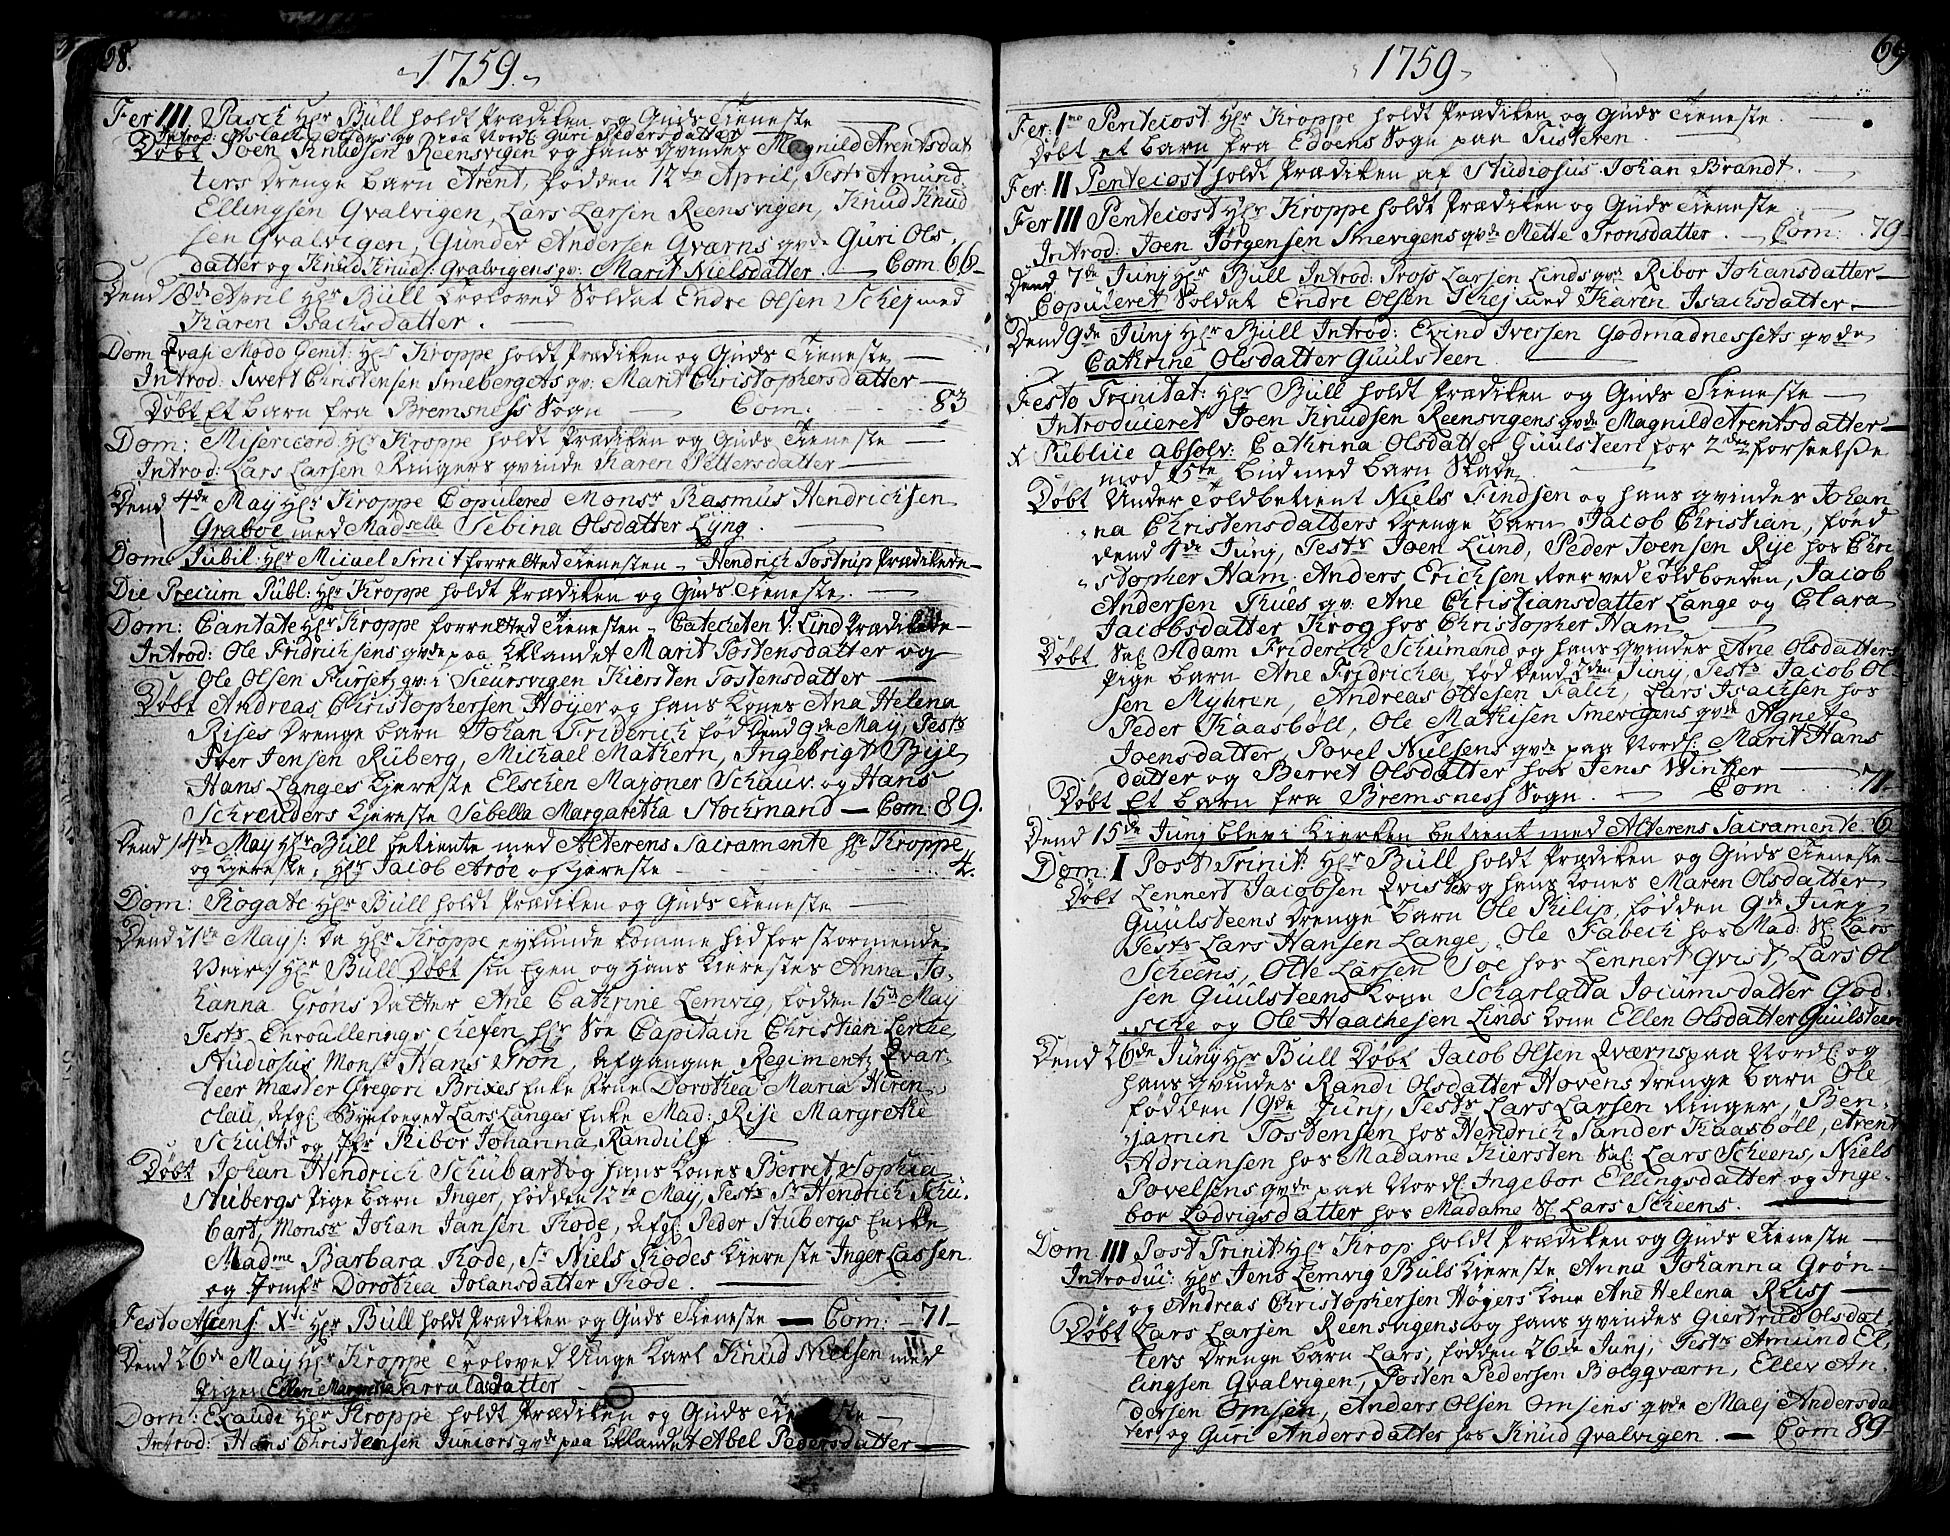 68.
1759.
Fer III Pasch Hr Büll holdt Prædiken og Guds Tieneste
Introd: Aslach Golmens qv paa Nordl: Guri Pedersdatter
Døbt Joen Knudsen Reensvigen og hans qvindes Magnild Arentsdat
ters drenge barn Arent, fødden 12te April, Test: Amund
Ellingsen Qvalvigen, Lars Larsen Reensvigen, Knud Knud
sen Qvalvigen, Gunder Andersen Qværns qvde Guri Ols
datter og Knud Knud: Qvalvigens qv: Marit Nielsdatter. Com. 66
Dend 18de April Hr Büll Troloved Soldat Endre Olsen Schej med
Karen Isachsdatter.
Dom Qvasi Modo Genit: Hr Kroppe holdt Prædiken og Guds Tieneste
Introd: Sivert Christensen Smebergets qv: Marit Christophersdatter
Døbt Et barn fra Bremsness Sogn Com. 83
Dom: Misericord: Hr Kroppe holdt Prædiken og Guds Tieneste
Introd: Lars Larsen Ringers qvinde Karen Pettersdatter
Dend 4de May Hr Kroppe Copulered Monsr Rasmus Hendrichsen
Graboe med Madselle Sebina Olsdatter Lyng.
Dom Jubil: Hr Micael Smit forretted Tienesten Hendrich Tostrup Prædikede
Die Precum Publ: Hr Kroppe holdt Prædiken og Guds Tieneste.
Dom: Cantate Hr Kroppe forretted Tienesten Catecheten V: Lind Prædikede
Introd: Ole Fridrichsens qvde paa Ellandet Marit Tostensdatter og
Ole Olsen Furset qv: i Sieursvigen Kiersten Tostensdatter
Døbt Andreas Christophersen Høyer og hans Kones Ana Helena
Rises drenge barn Johan Friderich fød dend 9de May, Tests
Iver Jensen Ruberg, Michael Mathern, Ingebrigt Bye
Hans Langes Kiereste Elschen Majoner Schauv. og Hans
Schreuders Kiereste Sebella Margaretha Stochmand Com: 89.
Dend 14de May Hr Büll betiente med Alterens Sacramente Hr Kroppe
og Kiereste, Hr Jacob Arøe og Kiereste 4.
Dom: Rogate Hr Büll holdt Prædiken og Guds Tieneste
Dend 21de May: da Hr Kroppe ey kunde komme hid for stormende
Veir: Hr Büll Døbt sin Egen og Hans Kierestes Anna Jo-
hanna Grøns datter Ane Cathrine Lemvig, fødden 15d May
Tests Enroullerings chefen Hr Søe Capitain Christian Lerche
Studiosus Monsr Hans Grøn, Afgangne Regiments Qvar-
teer Mæster Gregori Brixes Enke Frue Dorothea Maria Hiren
clau, Afg: Byefoeged Lars Langas Enke Mad: Rise Margrethe
Schults og Jfr Ribor Johanna Randulf
Døbt Johan Hendrich Schubart og hans Kones Berret Sophia
Stubergs Pige barn Inger, fødden 11te May, Tests Sr Hendrich Schu-
bart, Monsr Johan Jansen Rode, Afg: Peder Stubergs Encke
Madme Barbara Rode, Sr Niels Rodes Kiereste Inger Lassen
og Jomfr Dorothea Johansdatter Rode.
Festo Ascens: Xti Hr Büll holdt Prædiken og Guds Tieneste Com: 71
Dend 26de May Hr Kroppe Troloved Unge Karl Knud Nielsen med
Pigen Ellen Margretha datter
Dom: Exaudi Hr Kroppe holdt Prædiken og Guds Tieneste
Introd: Hans Christensen Juniors qvde paa Ellandet Abel Pedersdatter
69
1759
Fer: 1mo Pentecost Hr Kroppe holdt Prædiken og Guds Tieneste.
Døbt et barn fra Edøens Sogn paa Tusteren
Fer: II Pentecost holdt Prædiken af Studiosus Johan Brandt.
Fer III Pentecost Hr Kroppe holdt Prædiken og Guds Tieneste
Introd: Joen Jørgensen Smevigens qvde Mette Tronsdatter. Com: 79
Dend 7de Junj Hr Büll Introd: Tross Larsen Linds qv: Ribor Johansdatter
Copuleret Soldat Endre Olsen Schej med Karen Isachsdatter.
Dend 9de Junj Hr Büll Introd: Evind Iversen Godmadnessets qvde
Cathrine Olsdatter Guulsteen
Festo Trinitat: Hr Büll holdt Prædiken og Guds Tieneste
Introduceret Joen Knudsen Reensvigens qvde Magnild Arentsdatter
x Publice absolv: Cathrina Olsdatter Guulsteen for 2den forseelse
mod 6te Bud med barn Skade
Døbt Under Toldbetient Niels Findsen og hans qvindes Johan
na Christensdatters drenge barn Jacob Christian, fød
dend 4de Junj, Tests Joen Lund, Peder Joensen Rye hos Chri
stopher Ham, Anders Erichsen Roer ved Toldboeden, Jacob
Andersen Thues qv: Ane Christiansdatter Lange og Clara
Jacobsdatter Krog hos Christopher Ham
Døbt Sal: Adam Friderich Schumand og hans Qvindes Ane Olsdatters
Pige barn Ane Fridricha, fød dend 7den Junj, Tests Jacob Ol
sen Myhren, Andreas Ottesen Falch, Lars Isachsen hos
Peder Kaasbøll, Ole Mathisen Smevigens qvde Agnette
Joensdatter, Povel Nielsens qvde paa Nordl: Marit Hans
datter og Berret Olsdatter hos Jens Winther
Døbt Et barn fra Bremsness Sogn. Com 71.
Dend 15de Junj blev i Kierken betient med Alterens Sacramente 6
Dom: I Post Trinit: Hr Büll holdt Prædiken og Guds Tieneste
Døbt Lennert Jacobsen Qvist og hans Kones Maren Olsdatter
Guulsteens drenge barn Ole Philip, fødden 9de Junj
Tests Lars Hansen Lange, Ole Fabech hos Mad: Sl: Lars
Scheens, Otte Larsen Soe hos Lennert Qvist, Lars Ol
sen Guulsteens Kone Scharlatta Jocumsdatter God-
sche og Ole Haachesen Linds Kone Ellen Olsdatter Guulsteen
Dend 26de Junj Hr Büll Døbt Jacob Olsen Qværns paa Nordl: og
hans qvindes Randi Olsdatter Hovens drenge barn Ole
fødden 19de Junj, Tests Lars Larsen Ringer, Ben-
jamin Tostensen hos Hendrich Sander Kaasbøll, Arent
Adriansen hos Madame Kiersten Sal: Lars Scheens, Niels
Povelsens qvde paa Nordl: Ingebor Ellingsdatter og Inge-
bor Lodvigsdatter hos Madame Sl: Lars Scheens.
Dom III Post Trinit Hr Krop holdt Prædiken og Guds Tieneste
Introduc: Hr Jens Lemvig Büls Kiereste Anna Johanna Grøn
og Andreas Christophersen Høyers Kone Ane Helena Reiss
Døbt Lars Larsen Reensvigens og hans qvindes Giertrud Olsdat
ters drenge barn Lars, fødden 26de Junj, Tests Amund El
lingsen Qvalvigen, Tosten Pedersen Bolgqværn, Ellev An-
dersen Omsen, Anders Olsen Omsens qvde Malj Andersdat
ter og Guri Andersdatter hos Knud Qvalvigen. Com 89